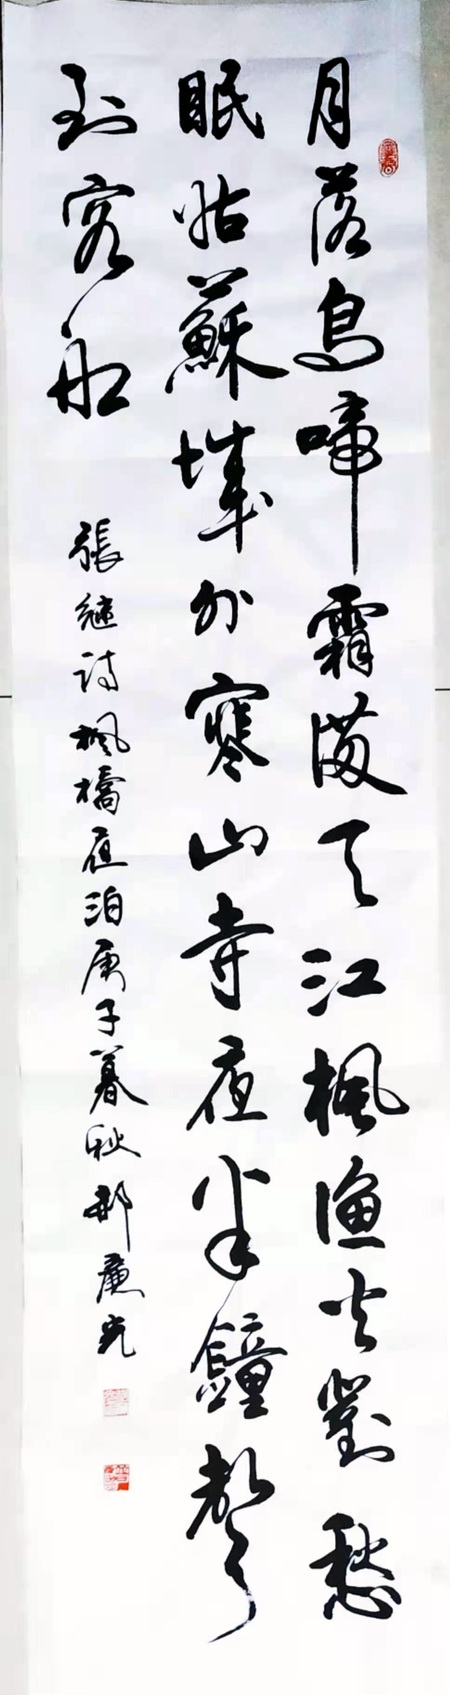 月落烏啼霜滿天江楓漁火對愁
眠姑蘇城外寒山寺夜半鐘聲
到客船
張継詩楓橋夜泊庚子暮秋郝廣光